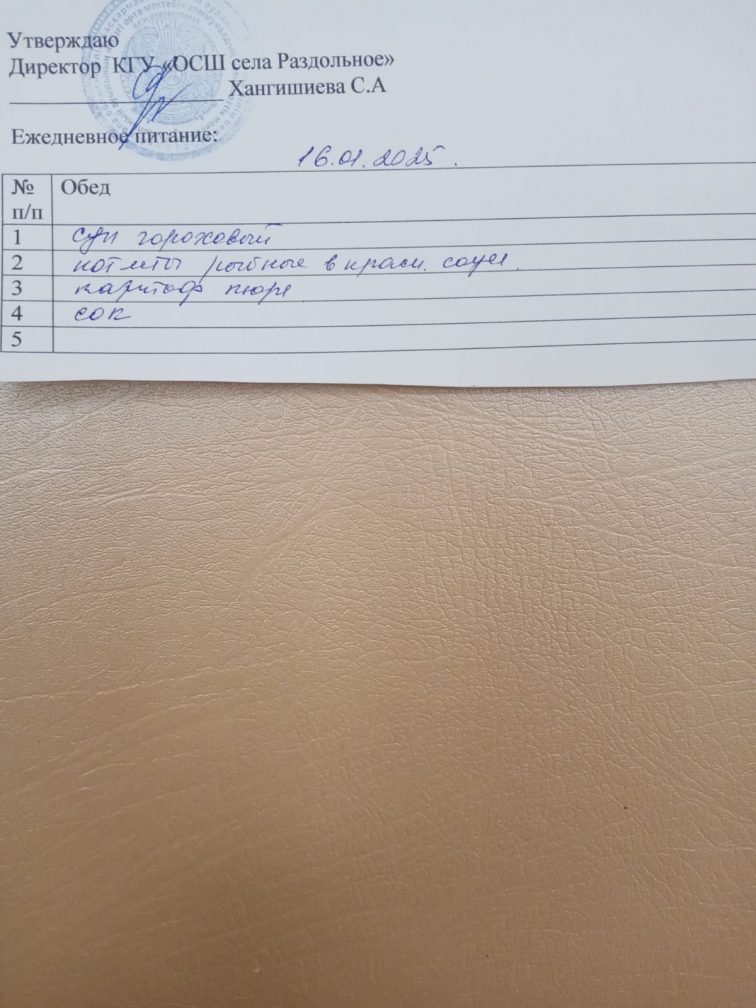 Утверждаю
Директор КГУ «ОСШ села Раздольное»
Хангишиева С.А
Ежедневное питание:
16.01.2025.
№ п/п Обед
1 суп гороховый
2 котлеты рыбные в красн. соусе.
3 картоф пюре
4 сок
5